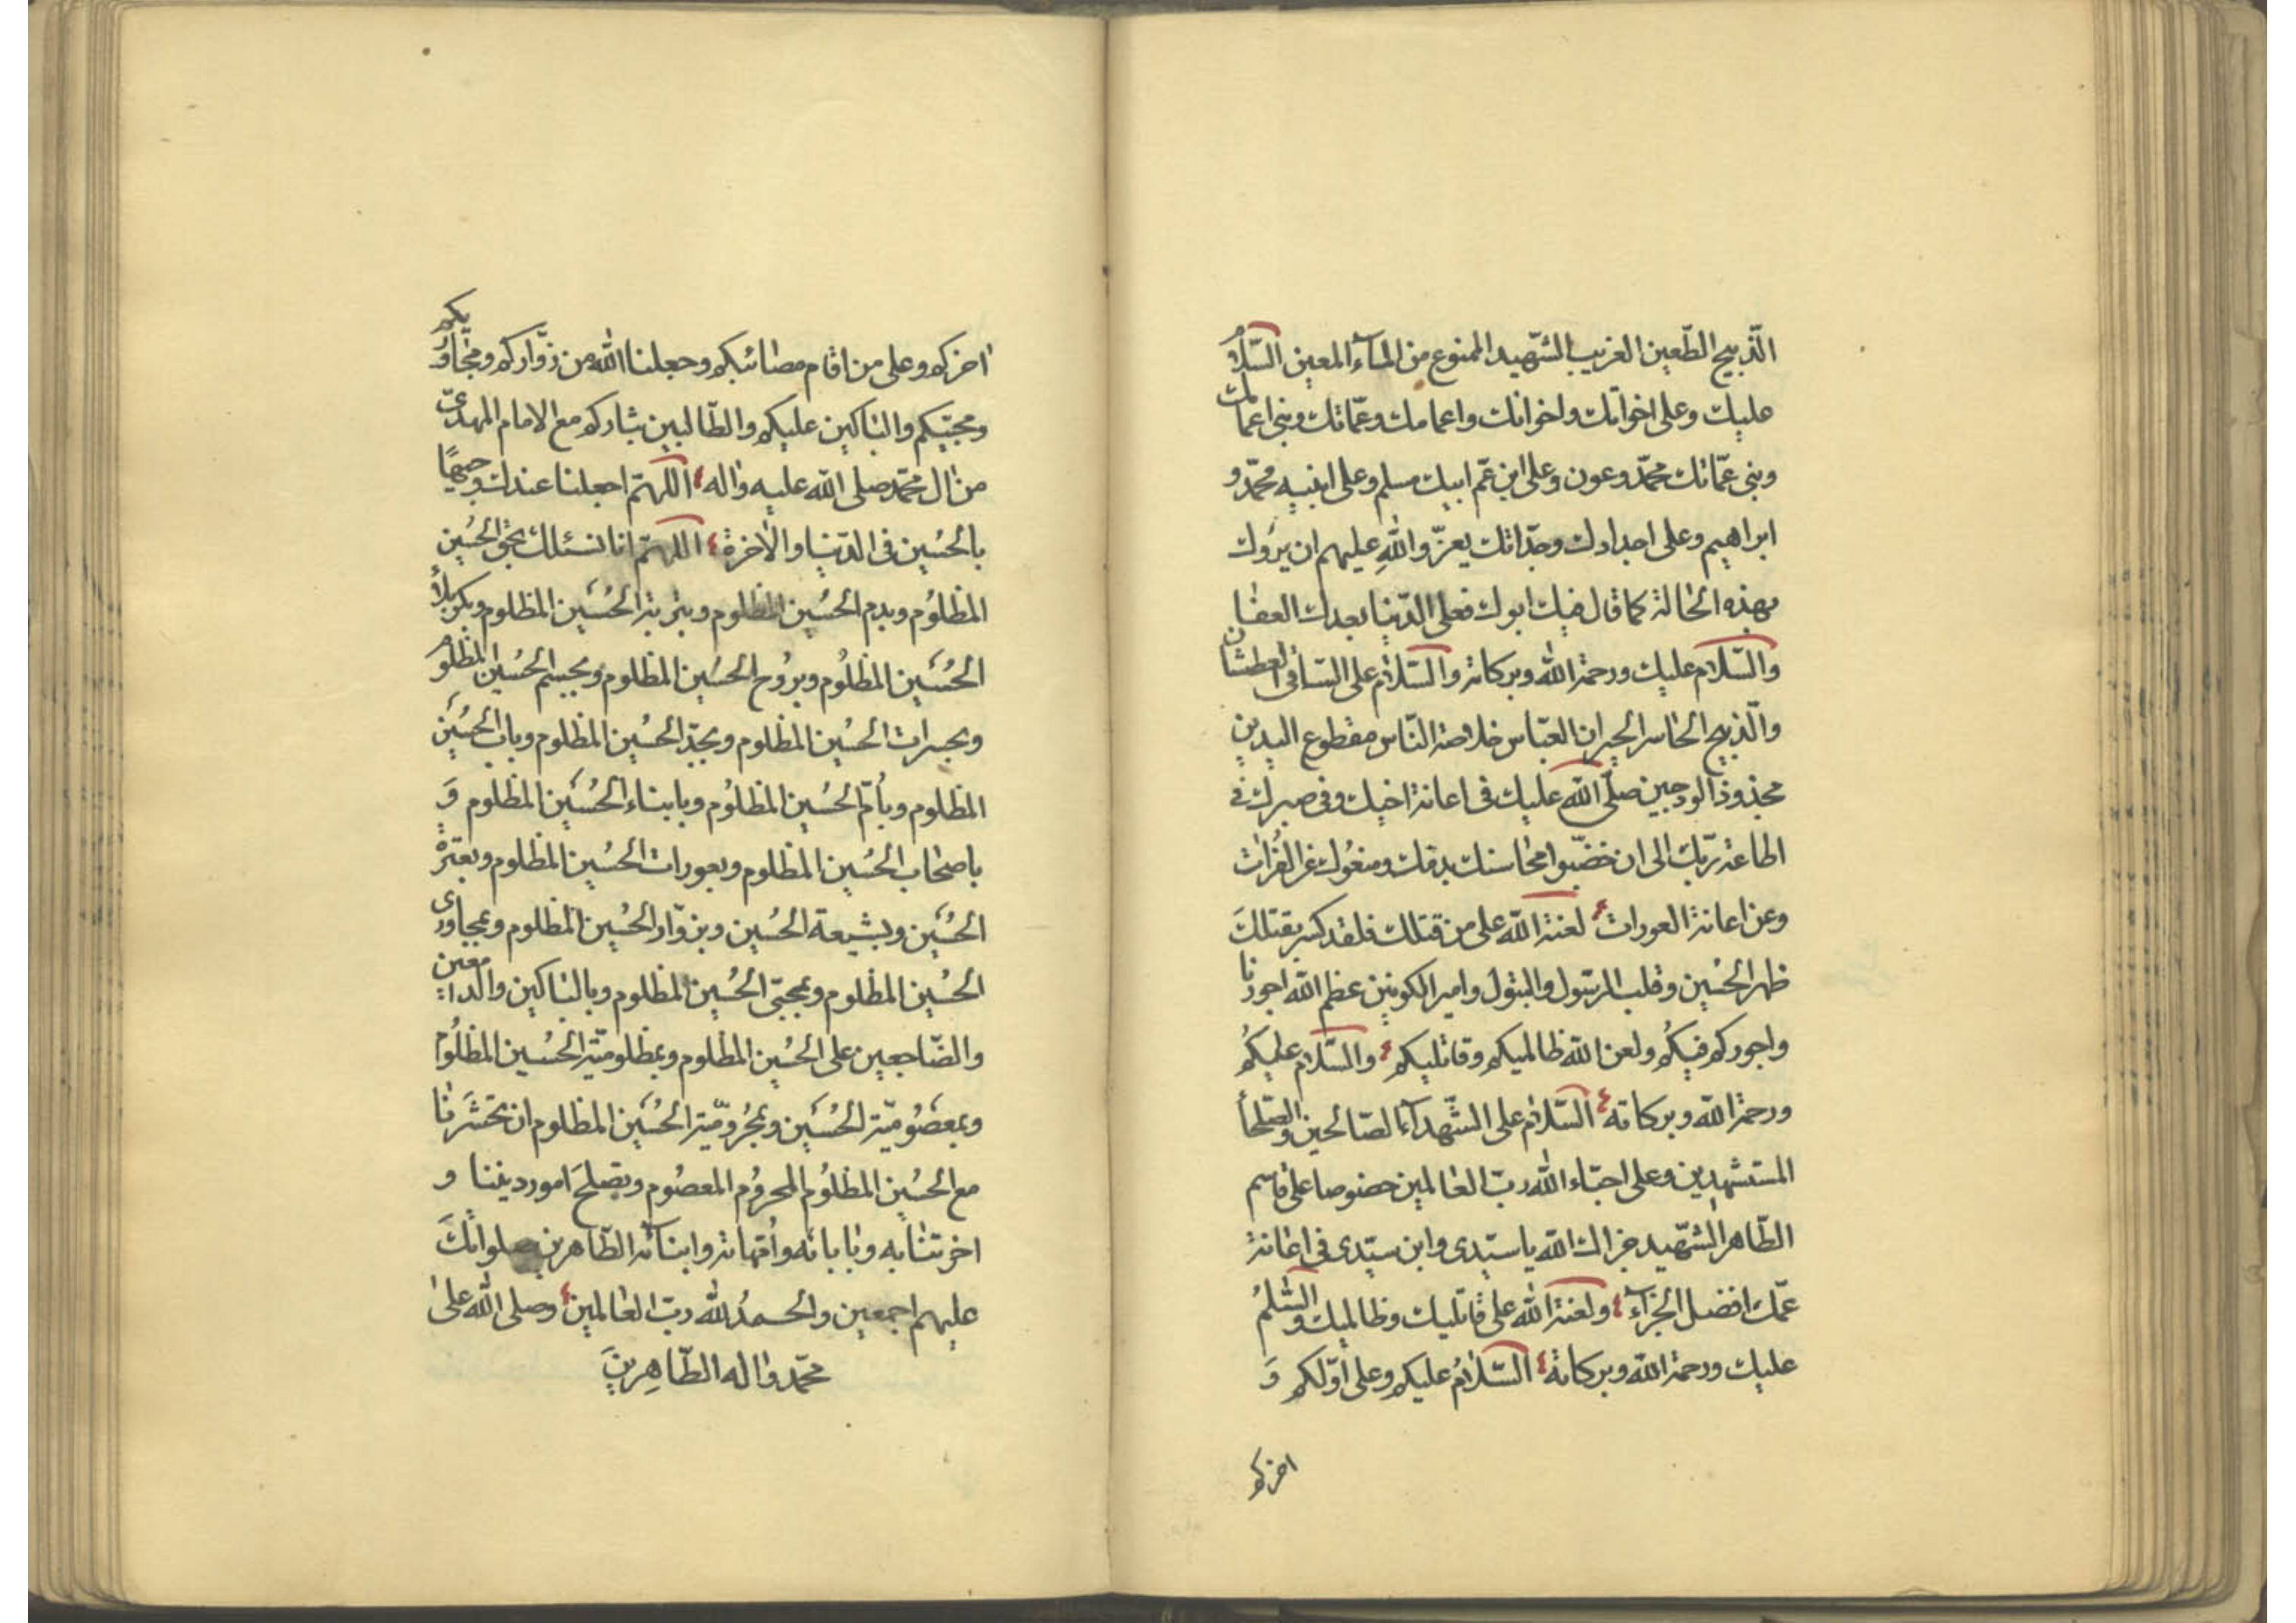 الذّبيح الطّعين الغريب الشّهيد الممنوع من المآء المعين السّلام
عليك وعلى اخواتك واخوانك واعمامك وعمّاتك وبنى اعمامك
وبنى عمّاتك محمّد وعون وعلى ابن عمّ ابيك مسلم وعلى ابنيه محمّد و
ابراهيم وعلى اجدادك وجدّاتك يعزّ والله عليهم ان يروك
بهذه الحالة كما قال فيك ابوك فعلى الدّنيا بعدك العفا
والسّلام عليك ورحمة الله وبركاته والسّلام على السّاقى العطشان
والذّبيح الحاسر الحيران العبّاس خلاصة النّاس مقطوع اليدين
مجذوذ الودجين صلّى الله عليك فى اعانة اخيك وفى صبرك فى
اطاعة ربّك الى ان خضّبوا محاسنك بدمك ومنعوك عن الفرات
وعن اعانة العورات لعنة الله على من قتلك فلقد كسر بقتلك
ظهر الحسين وقلب الرّسول والبتول وامير الكونين عظّم الله اجورنا
واجوركم فيكم ولعن الله ظالميكم وقاتليكم والسّلام عليكم
ورحمة الله وبركاته السّلام على الشّهدآء الصّالحين والصّلحآ
المستشهدين وعلى احبّاء الله ربّ العالمين خصوصا على قاسم
الطّاهر الشّهيد جزاك الله يا سيّدى وابن سيّدى فى اعانة
عمّك افضل الجزآء ولعنة الله على قاتليك وظالميك والسّلم
عليك ورحمة الله وبركاته السّلام عليكم وعلى اوّلكم وَ
اخركم
اخركم وعلى من اقام مصائبكم وجعلنا الله من زوّاركم ومجاوريكم
ومحبّيكم والباكين عليكم والطّالبين بثاركم مع الامام المهدىّ
من ال محمّد صلى الله عليه واله اللّهمّ اجعلنا عندك وجيهًا
بالحُسين فى الدّنيا والاخرة اللّهمّ انا نسئلك بحقّ الحُسين
المظلوُم وبدم الحسُين المظلوم وبتربة الحُسَين المظلوم وبكربلاء
الحُسَين المظلُوم وبرُوح الحسُين المظلوم وبجسم الحسُين المظلوم
وبجسرات الحسُين المظلوم وبجدّ الحسُين المظلوم وباب الحُسَين
المظلوم وبأمّ الحسُين المظلوُم وبابناء الحُسَين المظلوم وَ
باصحاب الحسُين المظلوم وبعورات الحسُين المظلوم وبعترة
الحسُين وبشيعة الحسُين وبزوّار الحسُين المظلوم وبمجاورى
الحسُين المظلوم وبمحبّى الحسُين المظلوم وبالباكين والدامعين
والضّاجعين على الحسُين المظلوم وبمظلوميّة الحسُين المظلُوم
وبمعصُوميّة الحُسَين وبمحُروميّة الحسُين المظلوم ان تحشرَنا
مع الحسُين المظلوُم المحرُوم المعصُوم وتصلحَ امور ديننا و
اخرتنا به وبابائه وامّهاته وابنائه الطّاهرين صلواتك
عليهم اجمعين والحمدُ لله ربّ العالمين وصلى الله على
محمّد واله الطّاهِرين